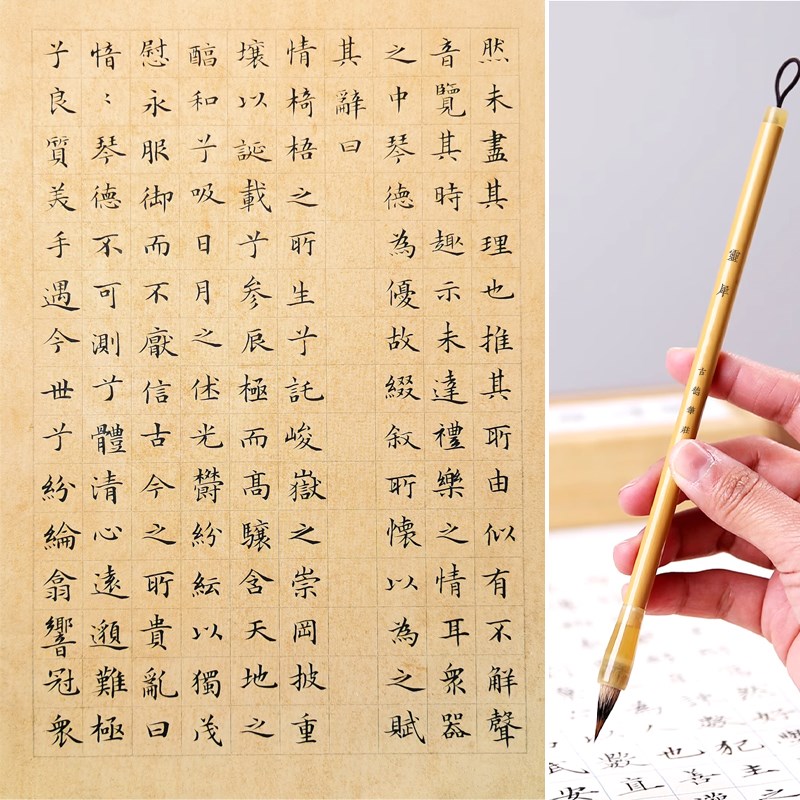 然未盡其理也推其所由似有不解聲
音覽其時趣示未達禮樂之情耳衆器
之中琴德為優故綴叙所懷以為之賦
其辭曰
情椅梧之所生兮託峻嶽之崇岡披重
壤以誕載兮参辰極而高驤含天地之
醕和兮吸日月之休光欝紛紜以獨茂
慰永服御而不厭信古今之所貴亂曰
愔〻琴德不可測兮體清心遠邈難極
兮良質美手遇今世兮紛綸翕響冠衆
靈犀
古華莊
犯主
也善
數直
安